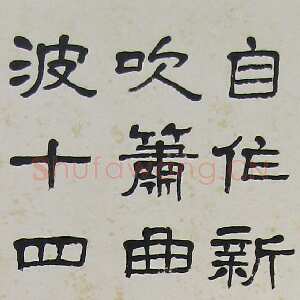 自作新
吹簫曲
波十四
Shufawang.cn